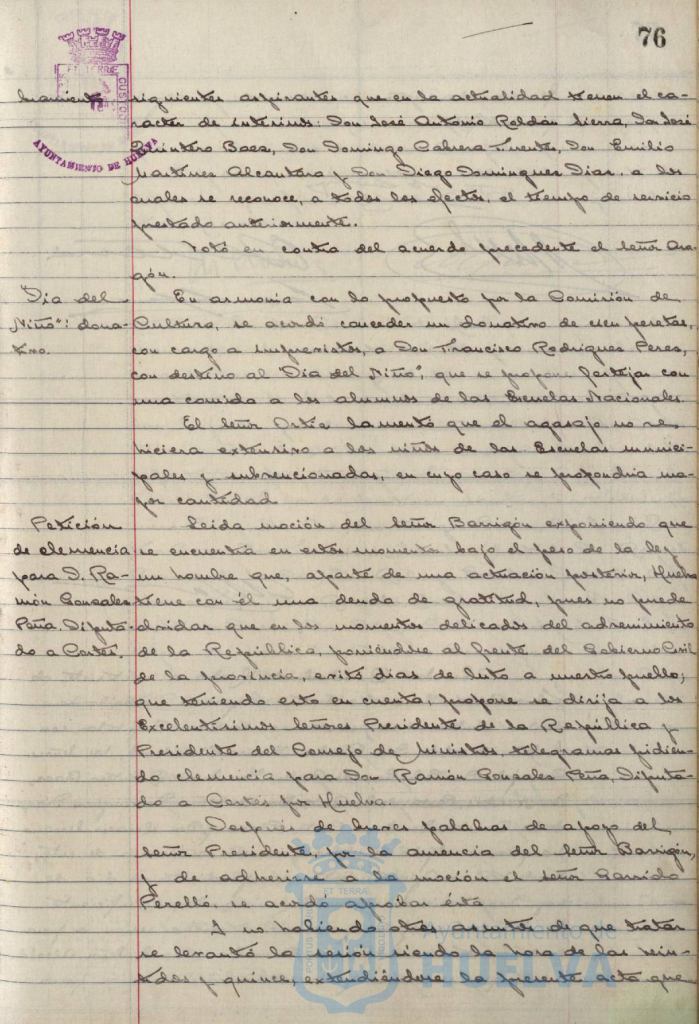 76
AYUNTAMIENTO DE HUELVA
siguientes aspirantes que en la actualidad tienen el ca-
racter de interinos: Don José Antonio Roldán Sierra, Don José
Quintero Baez, Don Domingo Cabrera Fuentes, Don Emilio
Martinez Alcantara y Don Diego Dominguez Diaz, a los
cuales se reconoce, a todos los efectos, el tiempo de servicio
prestado anteriormente.
Votó en contra del acuerdo precedente el señor Ara-
gón.
"Dia del
Niño": dona-
tivo.
En armonia con lo propuesto por la Comisión de
Cultura, se acordó conceder un donativo de cien pesetas,
con cargo a imprevistos, a Don Francisco Rodriguez Perez,
con destino al "Dia del Niño", que se propone festejar con
una comida a los alumnos de las Escuelas Nacionales.
El señor Ortiz lamentó que el agasajo no se
hiciera extensivo a los niños de las Escuelas munici-
pales y subvencionadas, en cuyo caso se propondria ma-
yor cantidad
Petición
de clemencia
para D. Ra-
món Gonzalez
Peña, Diputa-
do a Cortes.
Leida moción del señor Barrigón exponiendo que
se encuentra en estos momentos bajo el peso de la ley
un hombre que, aparte de una actuación posterior, Huelva
tiene con él una deuda de gratitud, pues no puede
olvidar que en los momentos delicados del advenimiento
de la República, poniéndose al frente del Gobierno Civil
de la provincia, evitó dias de luto a nuestro pueblo;
que teniendo esto en cuenta, propone se dirija a los
Excelentisimos Señores Presidente de la República y
Presidente del Consejo de Ministros, telegramas pidien-
do clemencia para Don Ramón Gonzalez Peña, Diputa-
do a Cortes por Huelva.
Después de breves palabras de apoyo del
señor Presidente, por la ausencia del señor Barrigón,
y de adherirse a la moción el señor Garrido
Perelló, se acordó aprobar ésta
Y no habiendo otros asuntos de que tratar
se levantó la sesión siendo la hora de las vein-
tidos y quince, extendiéndose la presente acta que
Ayuntamiento de
HUELVA